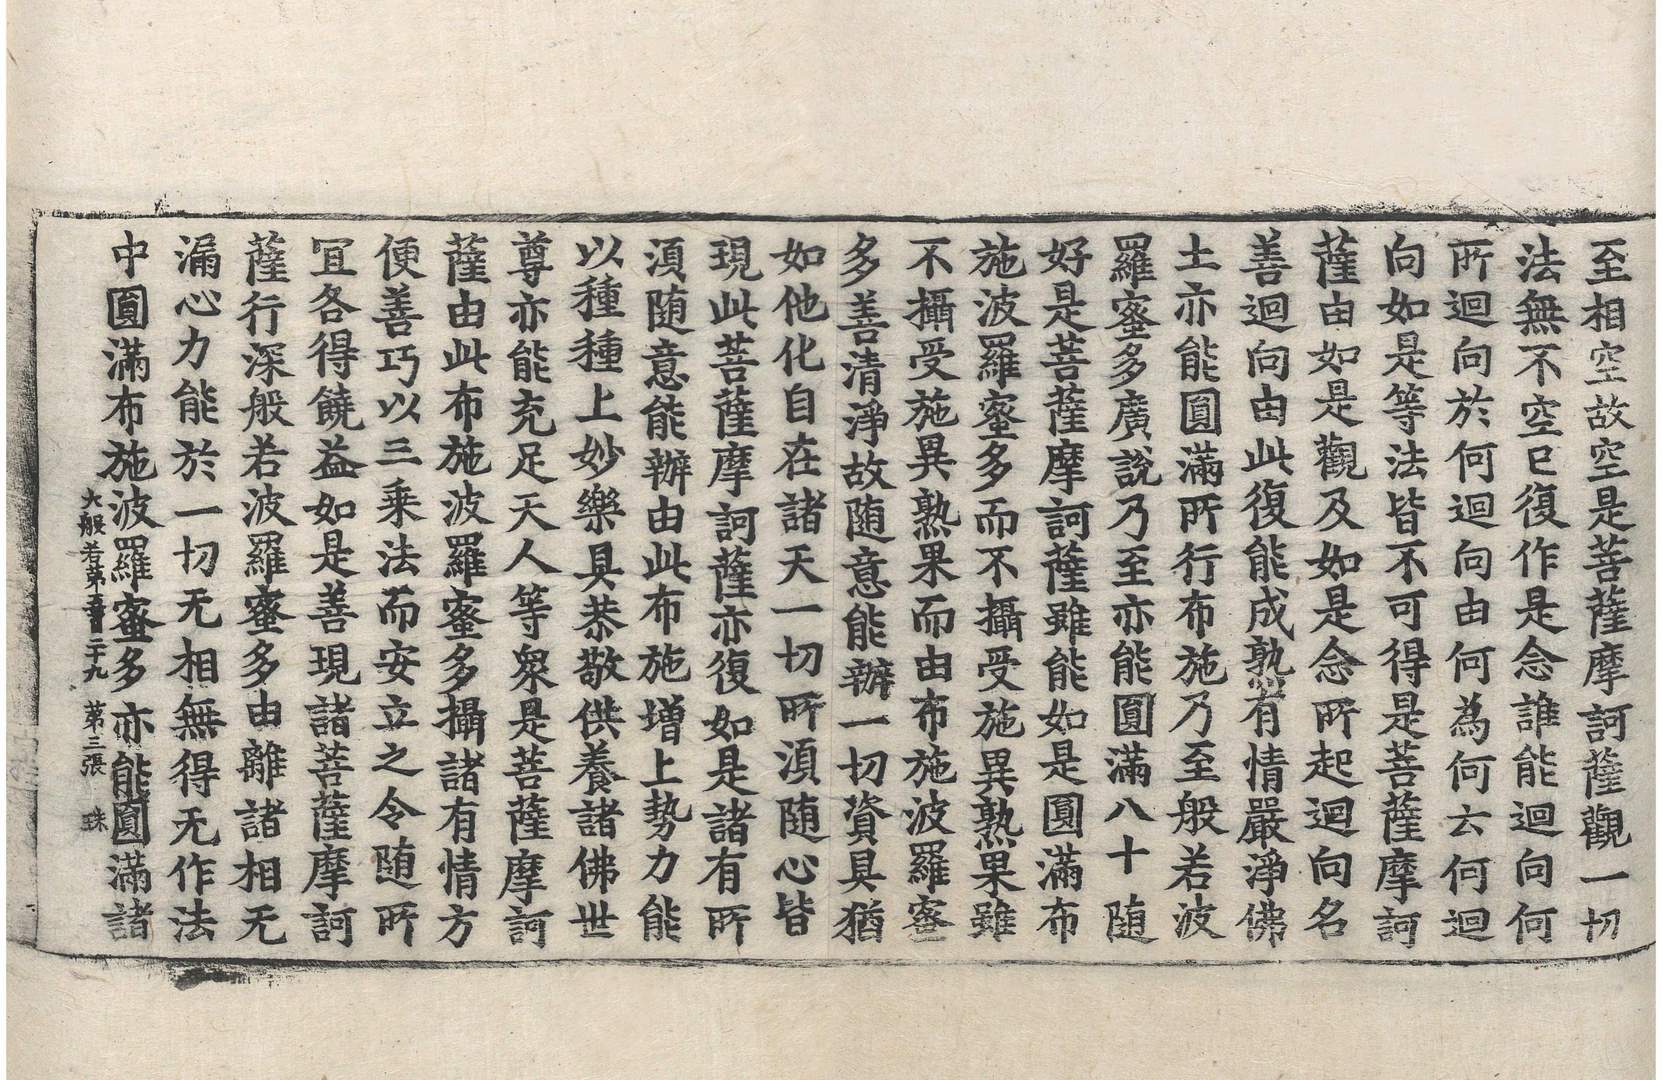 至相空故空是菩薩摩訶薩觀一切
法無不空已復作是念誰能迴向何
所迴向於何迴向由何為何云何迴
向如是等法皆不可得是菩薩摩訶
薩由如是觀及如是念所起迴向名
善迴向由此復能成熟有情嚴淨佛
土亦能圓滿所行布施乃至般若波
羅蜜多廣說乃至亦能圓滿八十随
好是菩薩摩訶薩雖能如是圓滿布
施波羅蜜多而不攝受施異熟果雖
不攝受施異熟果而由布施波羅蜜
多善清淨故随意能辦一切資具猶
如他化自在諸天一切所湏随心皆
現此菩薩摩訶薩亦復如是諸有所
湏随意能辦由此布施增上勢力能
以種種上妙樂具恭敬供養諸佛世
尊亦能充足天人等衆是菩薩摩訶
薩由此布施波羅蜜多攝諸有情方
便善巧以三乘法而安立之令随所
冝各得饒益如是善現諸菩薩摩訶
薩行深般若波羅蜜多由離諸相无
漏心力能於一切无相無得无作法
中圓滿布施波羅蜜多亦能圓滿諸
大般若第五百二十九 第三張 珠